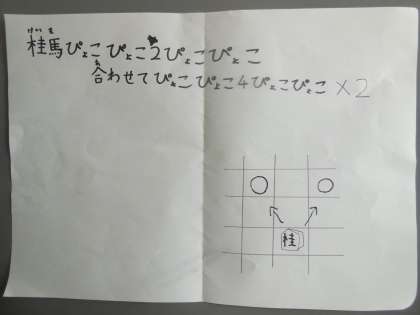 けいま
桂馬ぴょこぴょこ2ぴょこぴょこ
あ
合わせてぴょこぴょこ4ぴょこぴょこ×2
桂